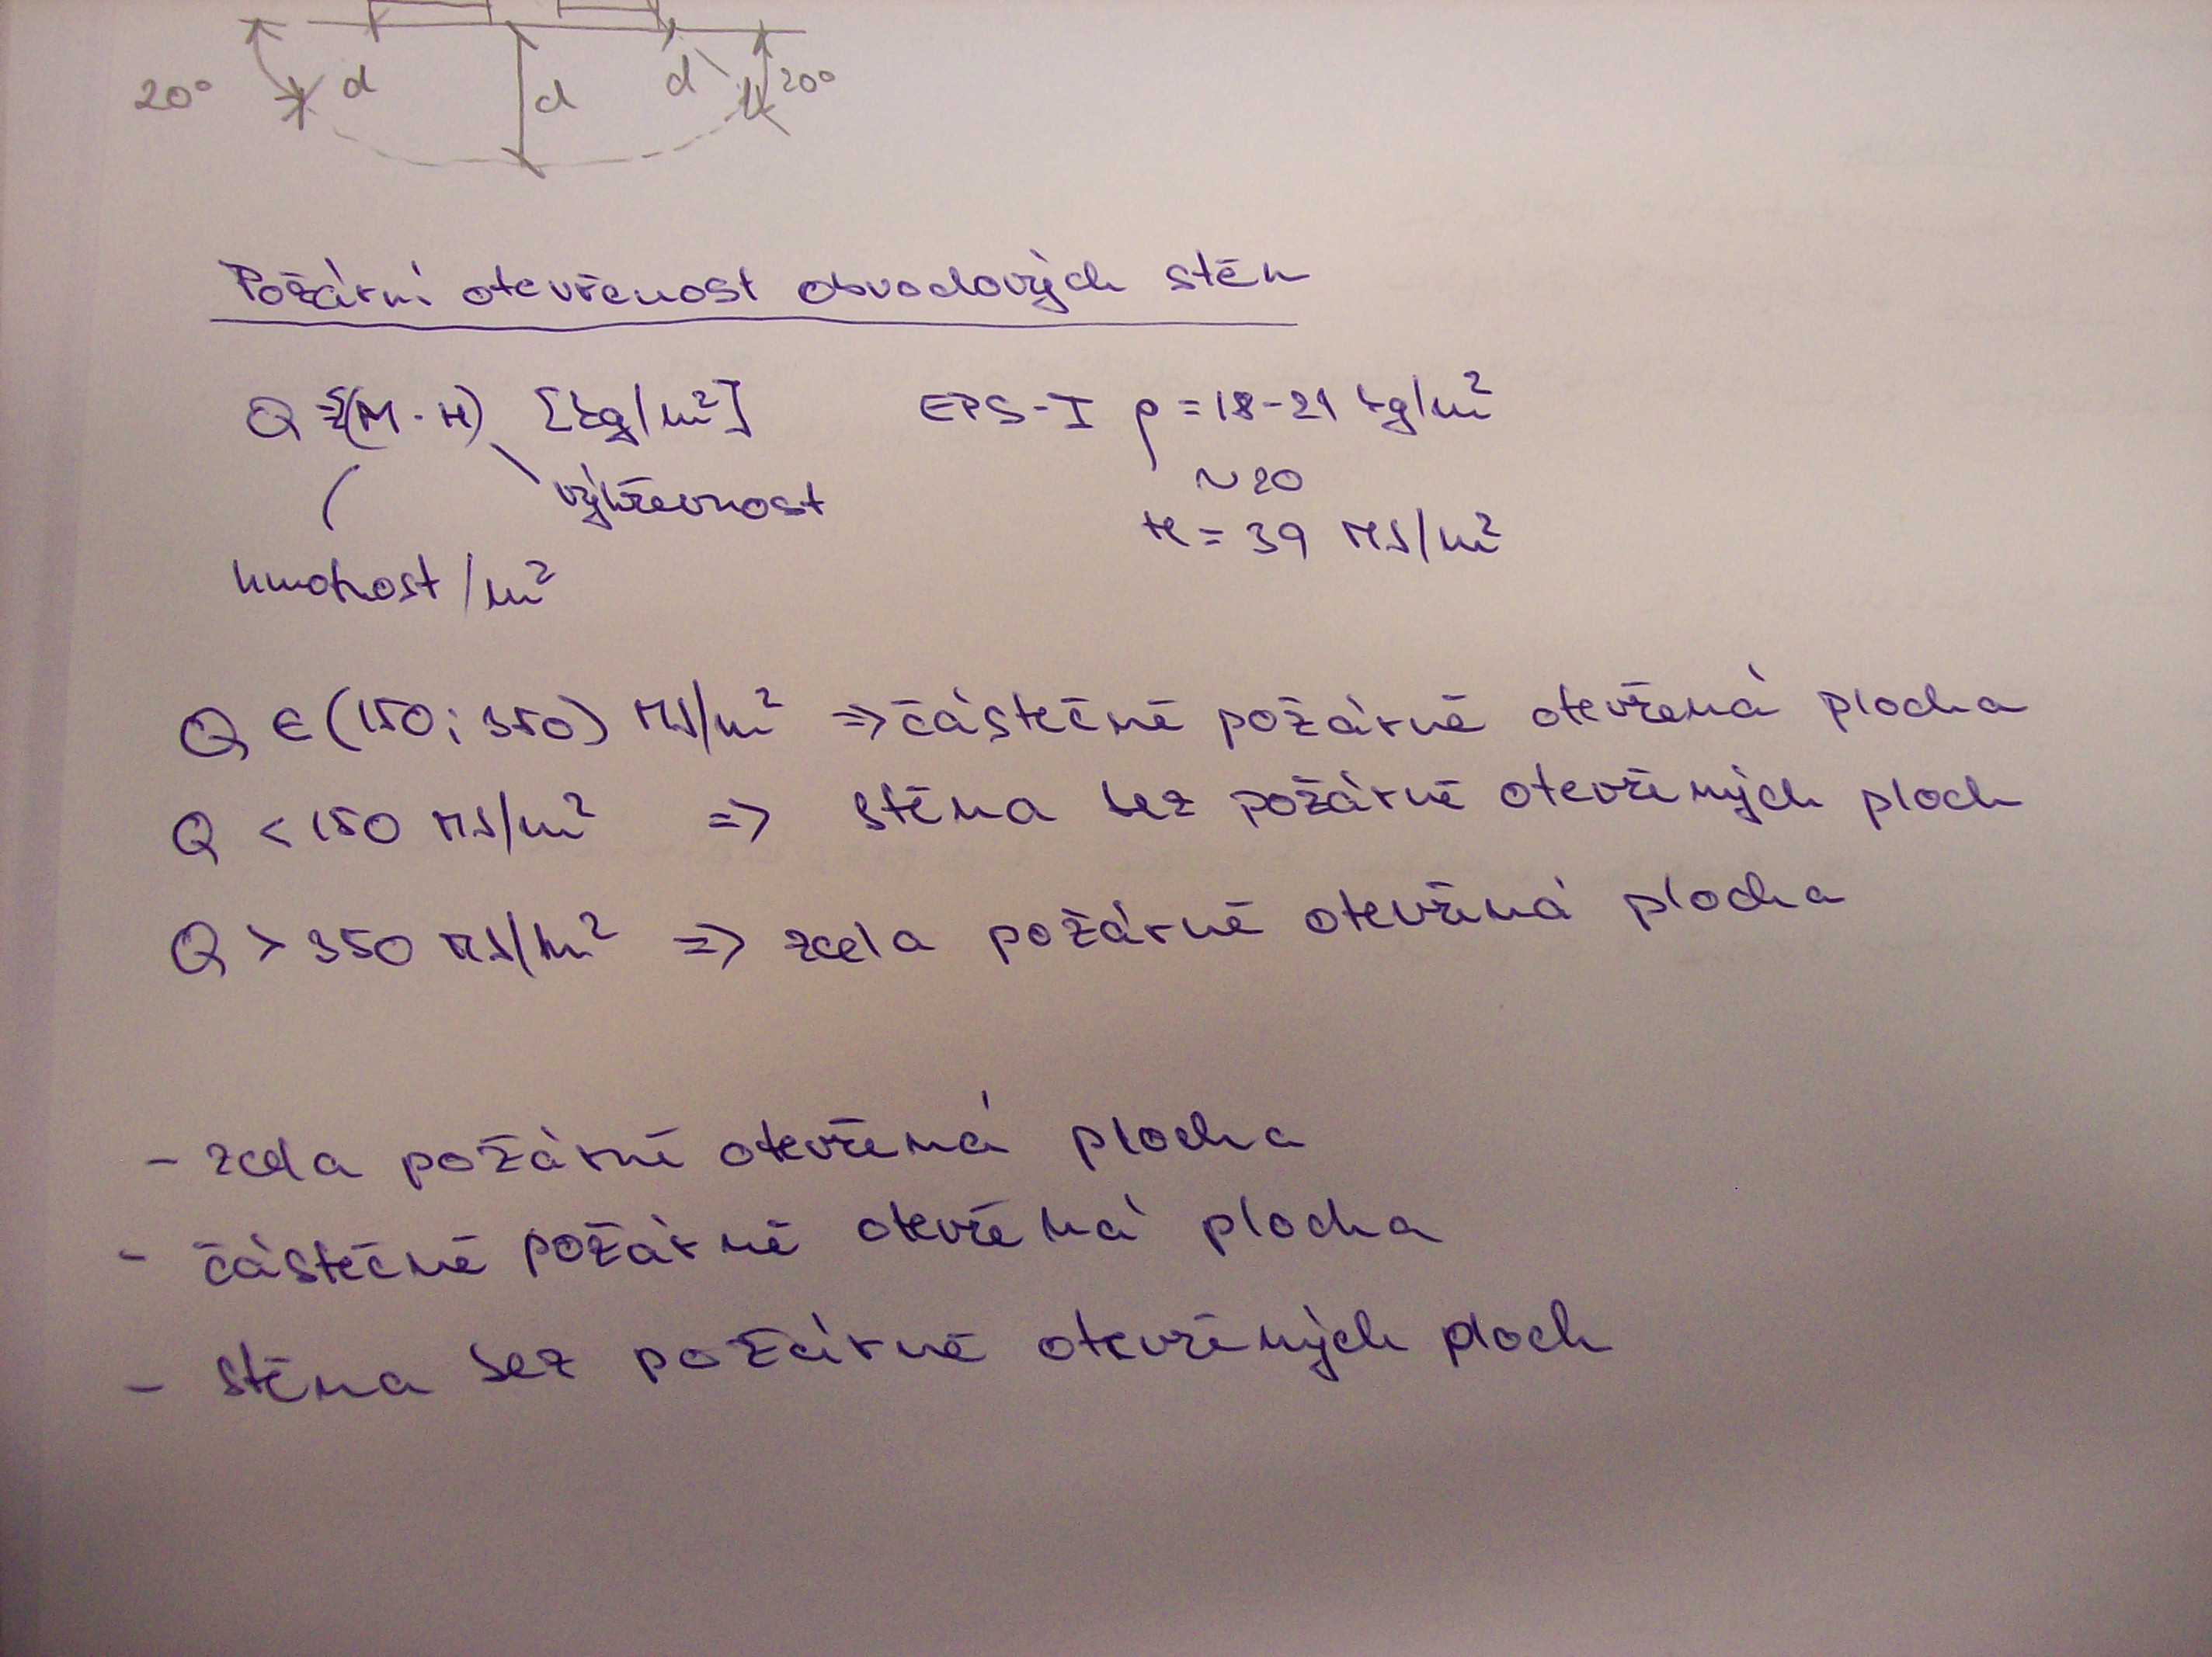 20° d d d 20°
Požární otevřenost obvodových stěn
Q = Σ(M · H) [kg/m²] EPS-I ρ = 18-21 kg/m²
výhřevnost ~20
H = 39 MJ/m²
hmotnost/m²
Q ∈ (150; 350) MJ/m² => částečně požárně otevřená plocha
Q < 150 MJ/m² => stěna bez požárně otevřených ploch
Q > 350 MJ/m² => zcela požárně otevřená plocha
- zcela požárně otevřená plocha
- částečně požárně otevřená plocha
- stěna bez požárně otevřených ploch